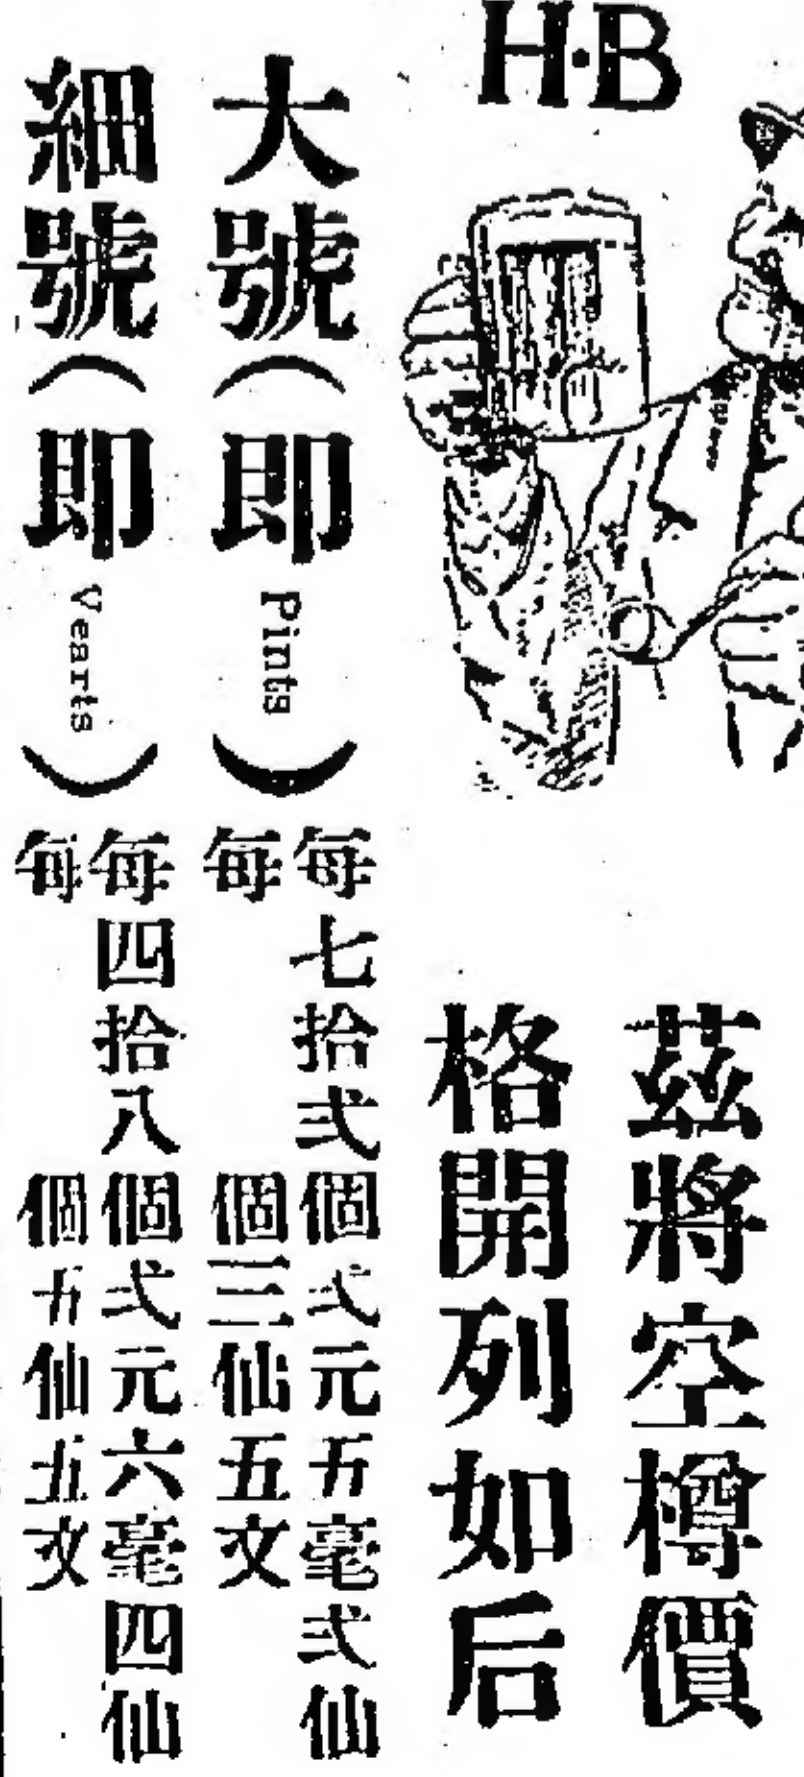 H·B
茲將空樽價
格開列如后
大號（即Pints）
每七拾弍個弍元五毫弍仙
每個三仙五文
細號（即Vearts）
每四拾八個弍元六毫四仙
每個五仙五文